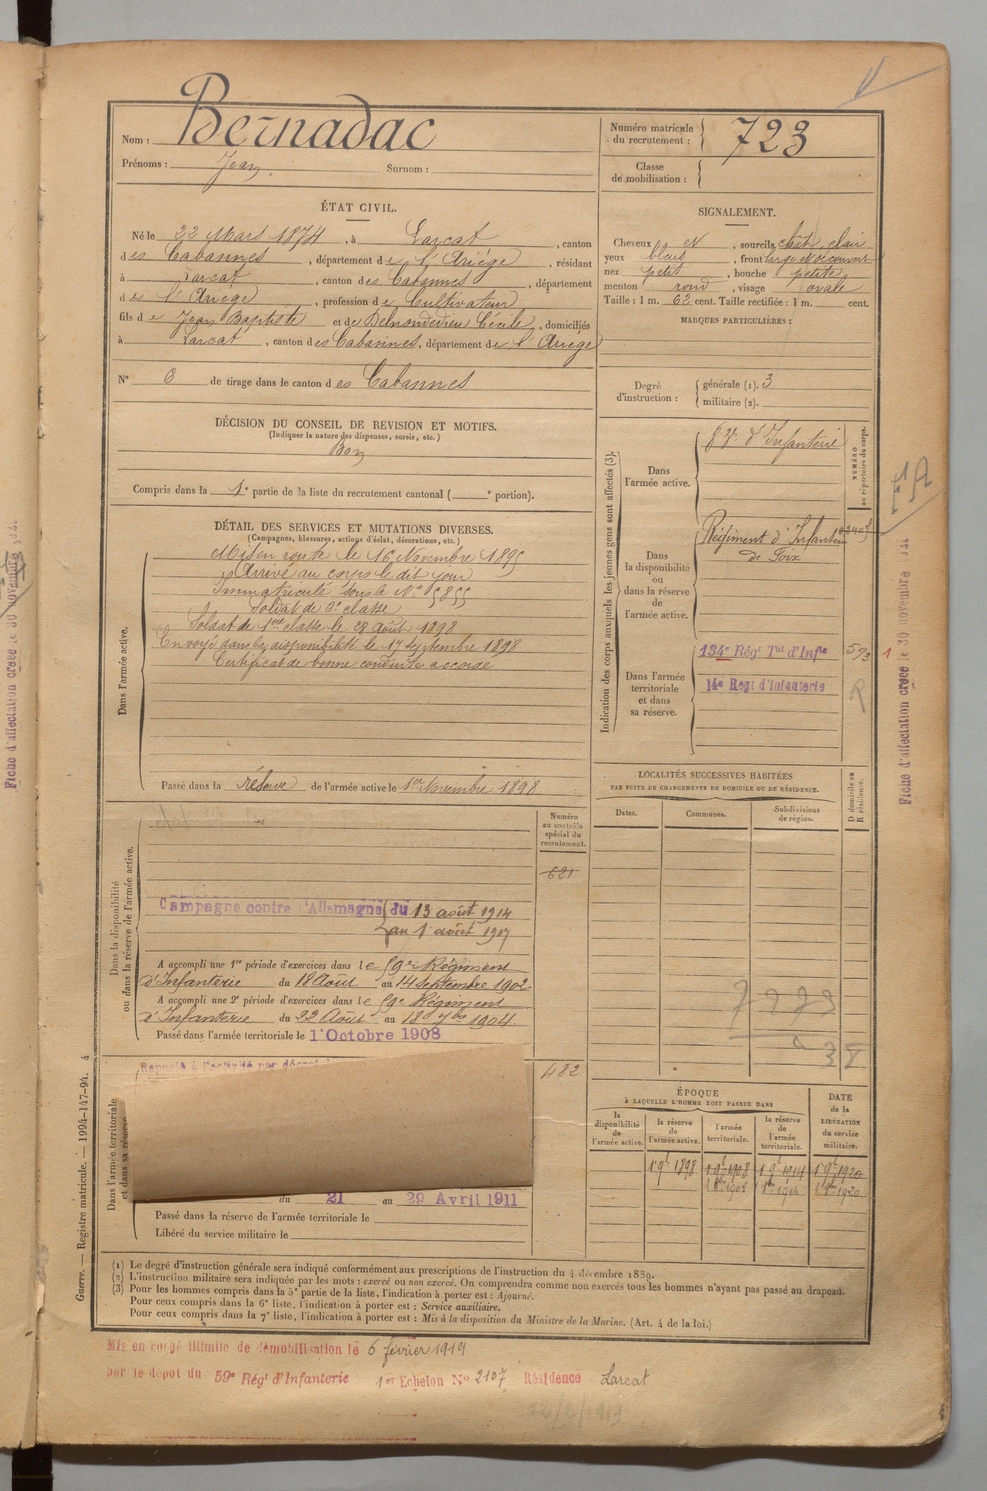 Nom : Bernadac
Prénoms : Jean. Surnom :
Numéro matricule du recrutement : 723
Classe de mobilisation :
ÉTAT CIVIL.
Né le 22 Mars 1874, à Larcat, canton
des Cabannes, département de l'Ariège, résidant
à Larcat, canton des Cabannes, département
de l'Ariège, profession de Cultivateur
fils de Jean Baptiste et de Cécile, domiciliés
à Larcat, canton des Cabannes, département de l'Ariège
N° 6 de tirage dans le canton des Cabannes
SIGNALEMENT.
Cheveux N, sourcils chât. clair
yeux bleus, front large et découvert
nez petit, bouche petite
menton rond, visage ovale
Taille : 1 m. 62 cent. Taille rectifiée : 1 m. cent.
MARQUES PARTICULIÈRES :
Degré d'instruction : générale (1). 3
militaire (2).
DÉCISION DU CONSEIL DE REVISION ET MOTIFS.
(Indiquer la nature des dispenses, sursis, etc.)
Bon
Compris dans la 1e partie de la liste du recrutement cantonal ( e portion).
DÉTAIL DES SERVICES ET MUTATIONS DIVERSES.
(Campagnes, blessures, actions d'éclat, décorations, etc.)
Dans l'armée active.
Mis en route le 16 Novembre 1895
Arrivé au corps le dit jour
Immatriculé sous le N° 5855
Soldat de 2e classe
Soldat de 1ère classe le 28 août 1898
Envoyé dans la disponibilité le 17 Septembre 1898
Certificat de bonne conduite accordé
Passé dans la réserve de l'armée active le 1er Novembre 1898
Indication des corps auxquels les jeunes gens sont affectés (3).
NUMÉRO au répertoire du corps.
Dans l'armée active.
d'Infanterie
Dans la disponibilité ou dans la réserve de l'armée active.
Régiment d'Infanterie
de Foix
Dans l'armée territoriale et dans sa réserve.
134e Régt Tal d'Infie 593
14e Regt d'Infanterie R
LOCALITÉS SUCCESSIVES HABITÉES
PAR SUITE DE CHANGEMENTS DE DOMICILE OU DE RÉSIDENCE.
Dates. Communes. Subdivisions de région. D domicile ou R résidence.
Dans la disponibilité ou dans la réserve de l'armée active.
Numéro au contrôle spécial du recrutement.
621
Campagne contre l'Allemagne du 13 août 1914
au 1 août 1917
A accompli une 1re période d'exercices dans le 59e Régiment
d'Infanterie du 18 Août au 14 Septembre 1902
A accompli une 2e période d'exercices dans le 59e Régiment
d'Infanterie du 22 Août au 18 7bre 1904.
Passé dans l'armée territoriale le 1er Octobre 1908
Dans l'armée territoriale et dans sa réserve
Rappelé à l'activité par décret
482
du 21 au 29 Avril 1911
Passé dans la réserve de l'armée territoriale le
Libéré du service militaire le
ÉPOQUE
À LAQUELLE L'HOMME DOIT PASSER DANS
la disponibilité de l'armée active. la réserve de l'armée active. l'armée territoriale. la réserve de l'armée territoriale. DATE de la LIBÉRATION du service militaire.
1 9b 1898 1 9b 1908 1 9b 1914 1 9b 1920
1 8bre 1908 1 8bre 1914 1 8bre 1920
(1) Le degré d'instruction générale sera indiqué conformément aux prescriptions de l'instruction du 4 décembre 1889.
(2) L'instruction militaire sera indiquée par les mots : exercé ou non exercé. On comprendra comme non exercés tous les hommes n'ayant pas passé au drapeau.
(3) Pour les hommes compris dans la 5e partie de la liste, l'indication à porter est : Ajourné.
Pour ceux compris dans la 6e liste, l'indication à porter est : Service auxiliaire.
Pour ceux compris dans la 7e liste, l'indication à porter est : Mis à la disposition du Ministre de la Marine. (Art. 4 de la loi.)
Guerre. — Registre matricule. — 1994-147-94. 4
Mis en congé illimité de démobilisation le 6 février 1919
par le dépôt du 59e Régt d'Infanterie 1er Echelon N° 2107 Résidence Larcat
12/2/1919
Fiche d'affectation créée le 30 novembre
Fiche d'affectation créée le 30 novembre